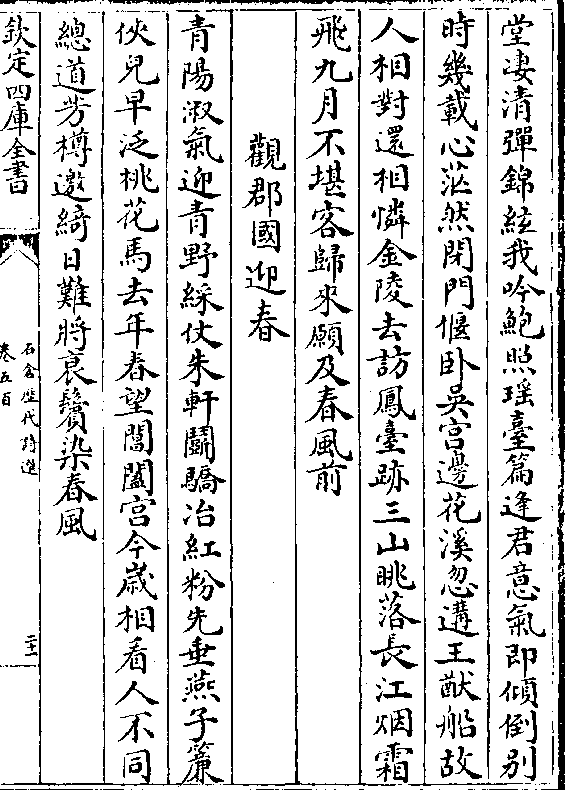 堂凄清彈錦絃我吟鮑照瑶臺篇逢君意氣即傾倒别
時幾載心茫然閉門偃卧吳宫邊花溪忽遘王猷船故
人相對還相憐金陵去訪鳳臺跡三山眺落長江烟霜
飛九月不堪客歸來願及春風前
觀郡國迎春
青陽淑氣迎青野綵仗朱軒鬬驕冶紅粉先垂燕子簾
俠兒早泛桃花馬去年春望閶闔宫今歲相看人不同
總道芳樽邀綺日難將衰鬢染春風
欽定四庫全書
石倉歷代詩選
卷五百
二十一